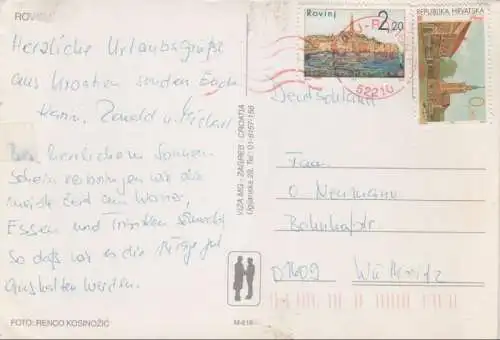 ROVINJ
Herzliche Urlaubsgrüße
aus Kroatien senden Euch
Hann, Donald u. Michael
Bei herrlichem Sonnen-
schein verbringen wir die
meiste Zeit am Wasser,
Essen und Trinken schmeckt
so daß wir es die Tage gut
aushalten werden.
FOTO: RENCO KOSINOŽIĆ
VIZA MG - ZAGREB - CROATIA
M-618
Rovinj
2,20
52210
REPUBLIKA HRVATSKA
Deutschland
Frau
O. Neumann
Bahnhofstr.